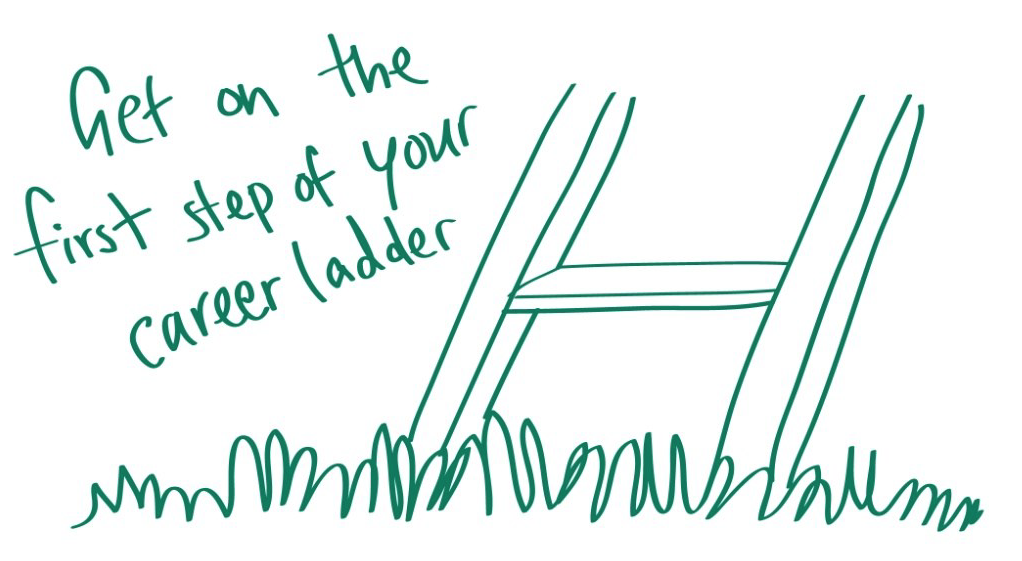 Get on the
first step of your
career ladder